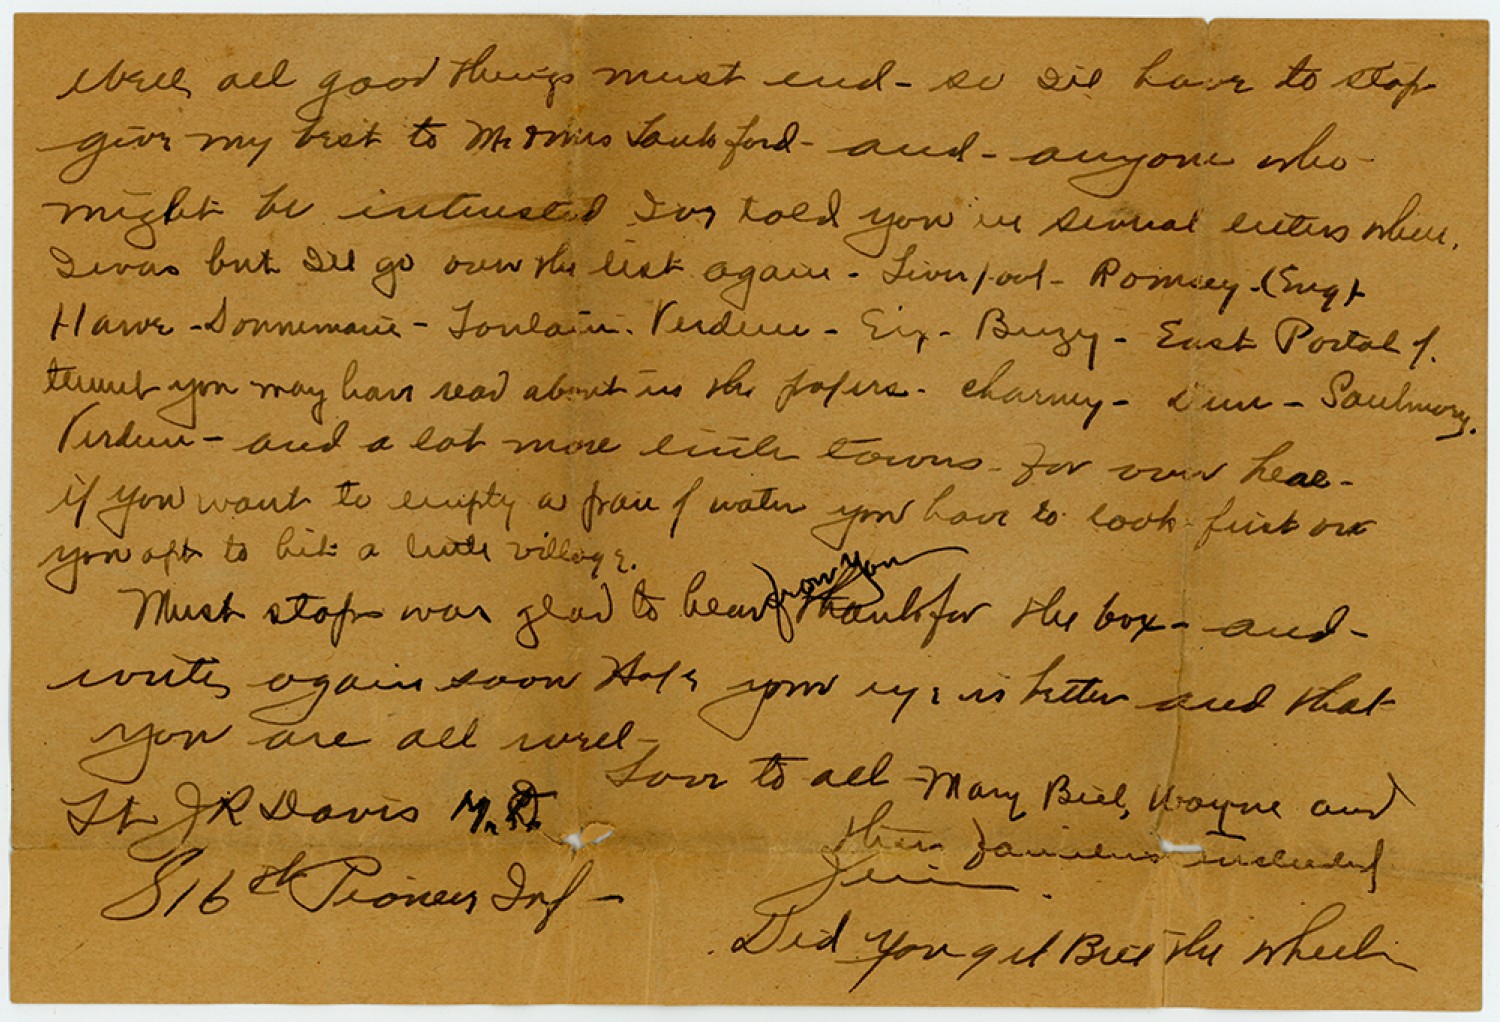 Well, all good things must end - so I'll have to stop
give my best to Mr & Mrs Lankford - and - anyone who
might be interested I've told you in several letters where
I was but I'll go over the list again - Liverpool - Romsey - (Eng)
Havre - Donnemarie - Verdun - Eix - Buzy - East Portal of
you may have read about in the papers - Charney - Dun - Saulmory,
Verdun - and a lot more little towns - for over hear -
if you want to empty a pan of water you have to look first or
you apt to hit a little village.
from you
Must stop was glad to hear thanks for the box - and -
write again soon Hope your eye is better and that
you are all well -
Love to all - Mary Bill, Wayne and
their families included
Lt J R Davis M.D.
Jim
816th Pioneer Inf -
Did you get Bill the wheel